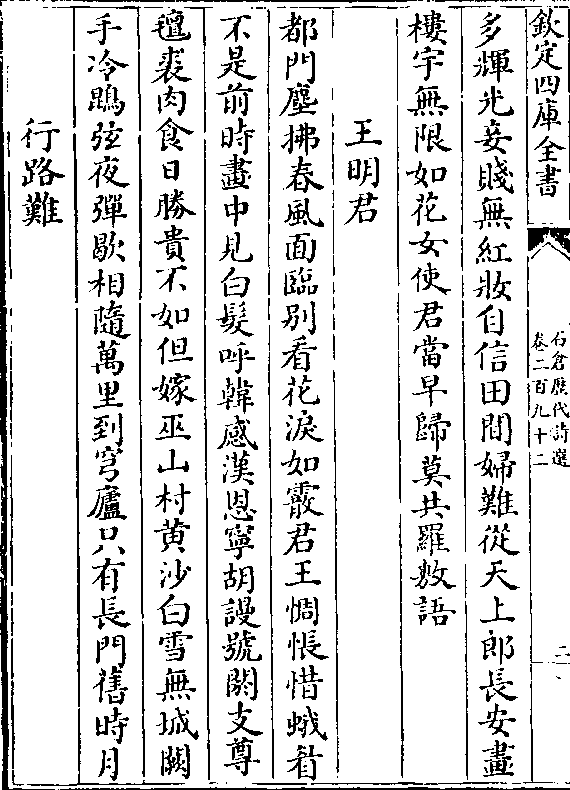 欽定四庫全書
石倉歷代詩選
卷二百九十二
二
多輝光妾賤無紅妝自信田間婦難從天上郎長安畫
樓宇無限如花女使君當早歸莫共羅敷語
王明君
都門塵拂春風面臨別看花淚如霰君王惆悵惜蛾眉
不是前時畫中見白髮呼韓感漢恩寧胡謾號閼支尊
氊裘肉食日勝貴不如但嫁巫山村黄沙白雪無城闕
手冷鵾弦夜彈歇相隨萬里到穹廬只有長門舊時月
行路難